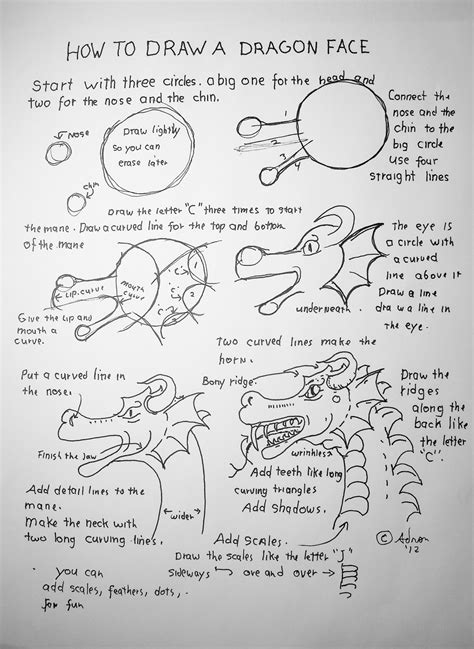 HOW TO DRAW A DRAGON FACE
Start with three circles. a big one for the head and
two for the nose and the chin.
Nose
Draw lightly
so you can
erase later
chin
1
2
3
4
Connect the
nose and the
chin to the
big circle
use four
straight lines
Draw the letter "C" three times to start
the mane. Draw a curved line for the top and bottom
of the mane
Lip curve
mouth
curve
"C"
1
"C"
2
"C"
Give the lip and
mouth a
curve.
The eye is
a circle with
a curved
line above it
Draw a line
underneath.
draw a line in
the eye.
Two curved lines make the
horn.
Put a curved line in
the nose.
Bony ridge.
Draw the
ridges
along the
back like
the letter
"C".
Finish the Jaw
wrinkles
wider
Add detail lines to the
mane.
make the neck with
two long curving lines.
Add teeth like long
curving triangles
Add shadows.
Add scales.
Draw the scales like the letter "J"
sideways ove and over
© Adron
'12
you can
add scales, feathers, dots,
for fun